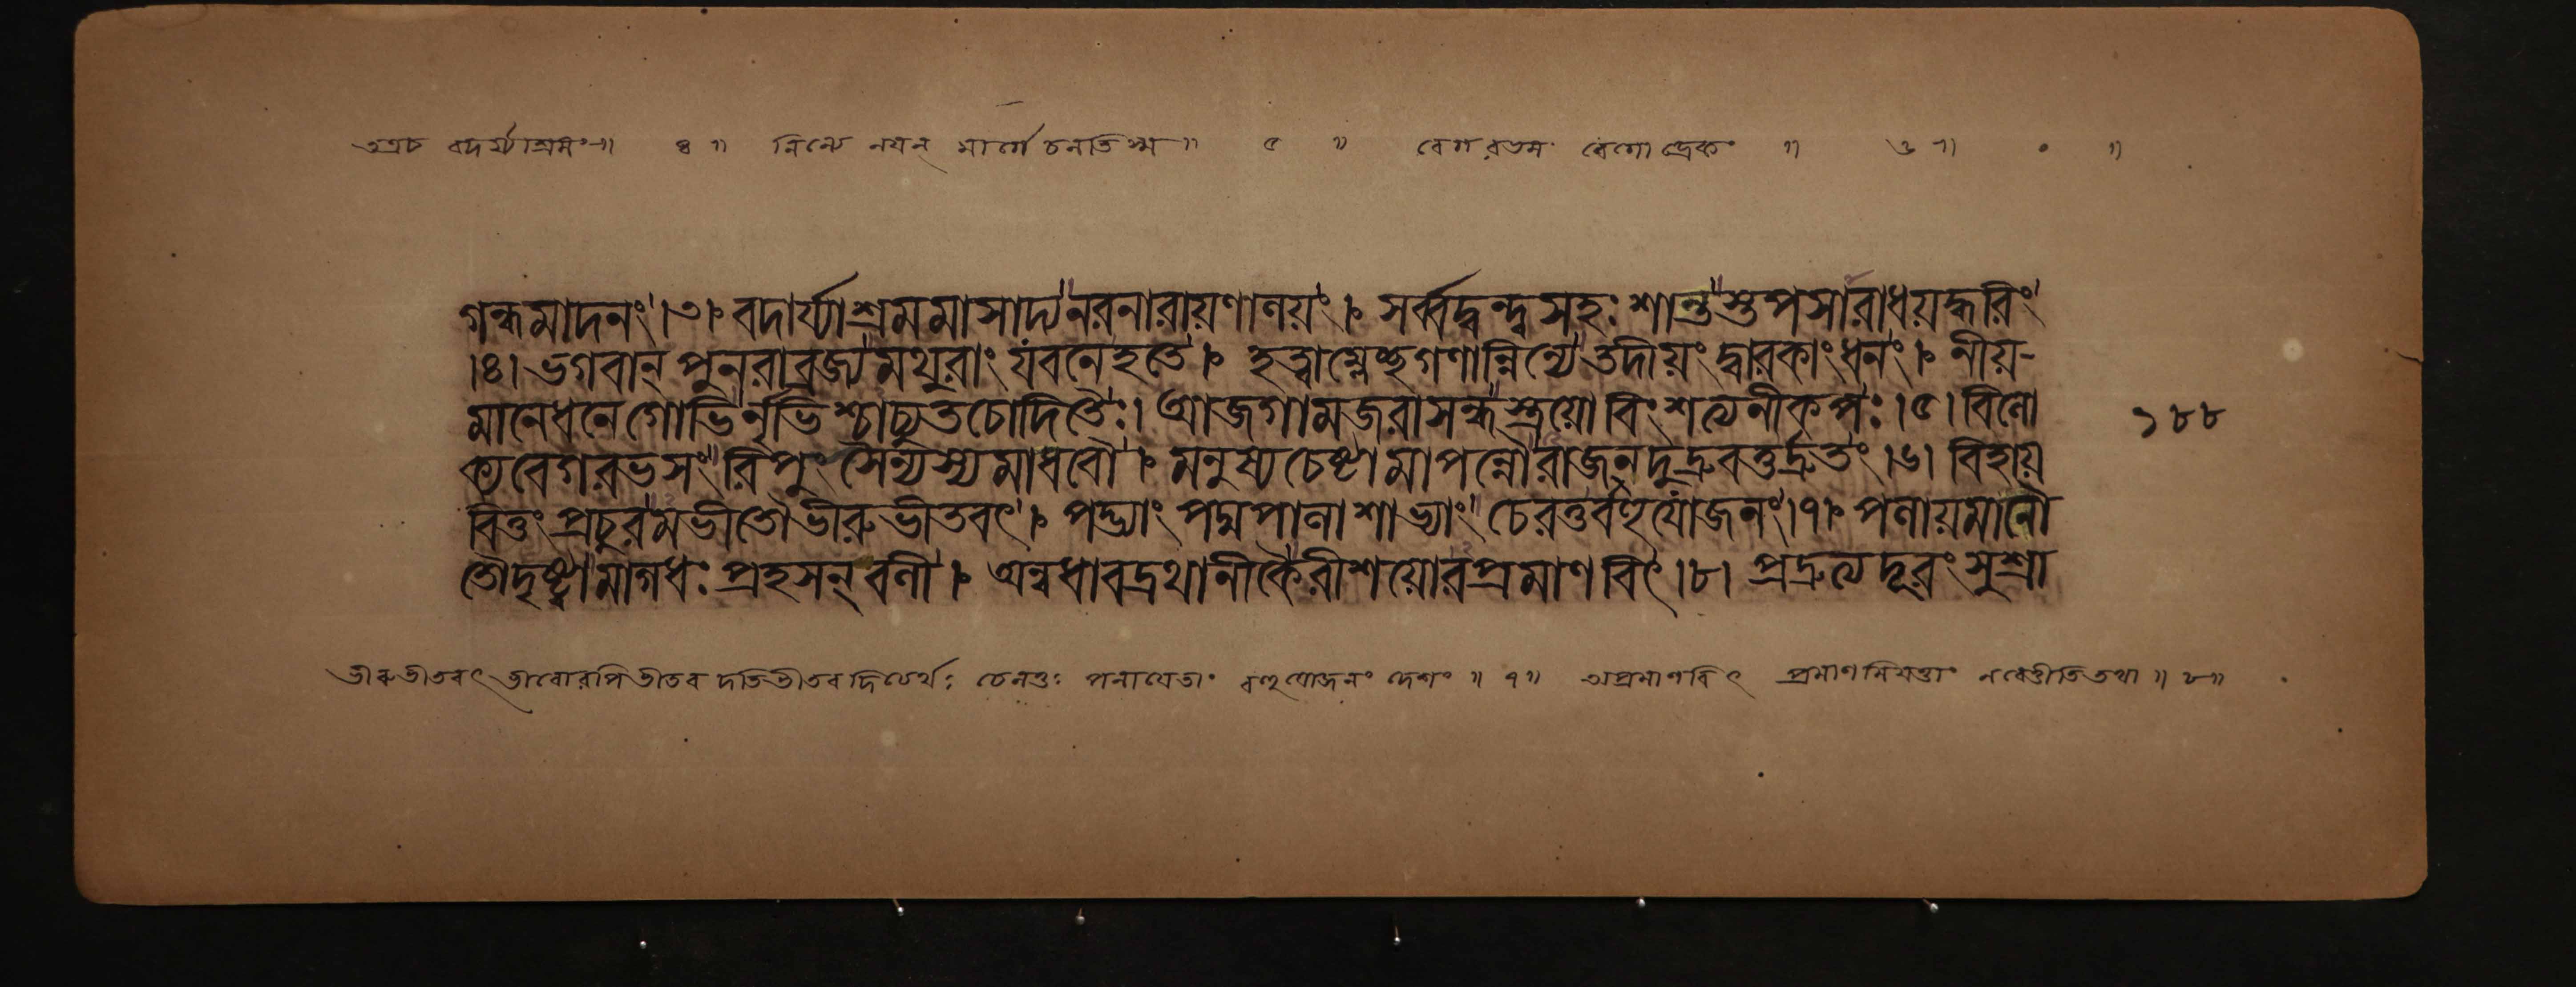 তত্রচ বদর্য্যাশ্রমং॥ ৪॥ নিন্যে নযন্ মার্গে চলতিস্ম॥ ৫॥ বেগরভসং বেগোদ্রেকং॥ ৬॥ ০॥
গন্ধমাদনং।৩। বদার্য্যাশ্রমমাসাদ্যনরনারায়ণালয়ং। সর্ব্বদ্বন্দ্বসহঃশান্তস্তপসারাধয়দ্ধরিং
।৪। ভগবান্ পুনরাব্রজ্যমথুরাং যবনেহতে। হত্বাম্লেচ্ছগণান্নিন্যেতদীয়ং দ্বারকাংধনং। নীয়-
মানেধনেগোভির্নৃভিশ্চাচ্যুতচোদিতৈঃ। আজগামজরাসন্ধস্ত্রয়োবিংশত্যনীকপঃ।৫। বিলো
ক্যবেগরভসং রিপুংসৈন্যস্যমাধবৌ। মনুষ্যচেষ্টামাপন্নৌরাজন্দুদ্রুবতুর্দ্রুতং।৬। বিহায়
বিত্তং প্রচুরমভীতৌভীরুভীতবৎ। পদ্ভ্যাং পদ্মপলাশাভ্যাং চেরতুর্বহুযোজনং।৭। পলায়মানৌ
তৌদৃষ্ট্বামাগধঃ প্রহসন্ বলী। অন্বধাবদ্রথানীকৈরীশয়োরপ্রমাণবিৎ।৮। প্রদ্রুত্যদূরং সুশ্রা
১৮৮
ভীরুভীতবৎ ভীরোরপিভীতব দতিভীতবদিত্যর্থঃ চেরতুঃ পলাযেতাং বহুযোজনং দেশং॥ ৭॥ অপ্রমাণবিৎ প্রমাণমিযত্তাং নবেত্তীতিতথা॥ ৮॥